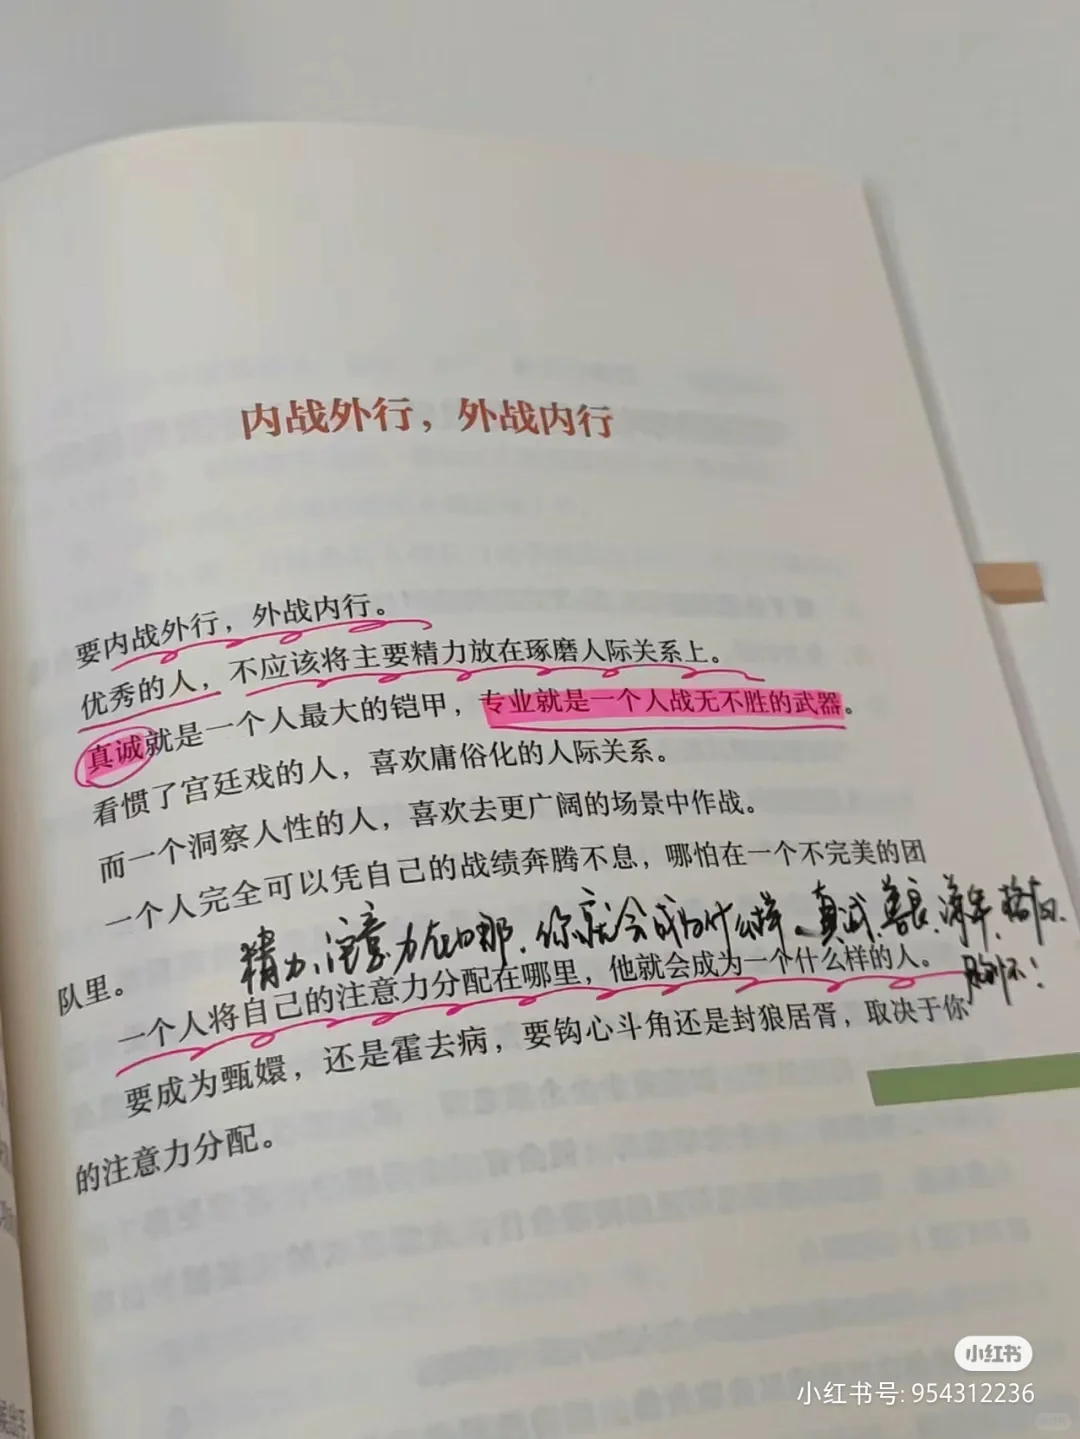 内战外行，外战内行
要内战外行，外战内行。
优秀的人，不应该将主要精力放在琢磨人际关系上。
真诚就是一个人最大的铠甲，专业就是一个人战无不胜的武器。
看惯了宫廷戏的人，喜欢庸俗化的人际关系。
而一个洞察人性的人，喜欢去更广阔的场景中作战。
一个人完全可以凭自己的战绩奔腾不息，哪怕在一个不完美的团
队里。
精力、注意力在哪，你就会成为什么样。真诚、善良、
胸怀！
一个人将自己的注意力分配在哪里，他就会成为一个什么样的人。
要成为甄嬛，还是霍去病，要钩心斗角还是封狼居胥，取决于你
的注意力分配。
小红书
小红书号: 954312236